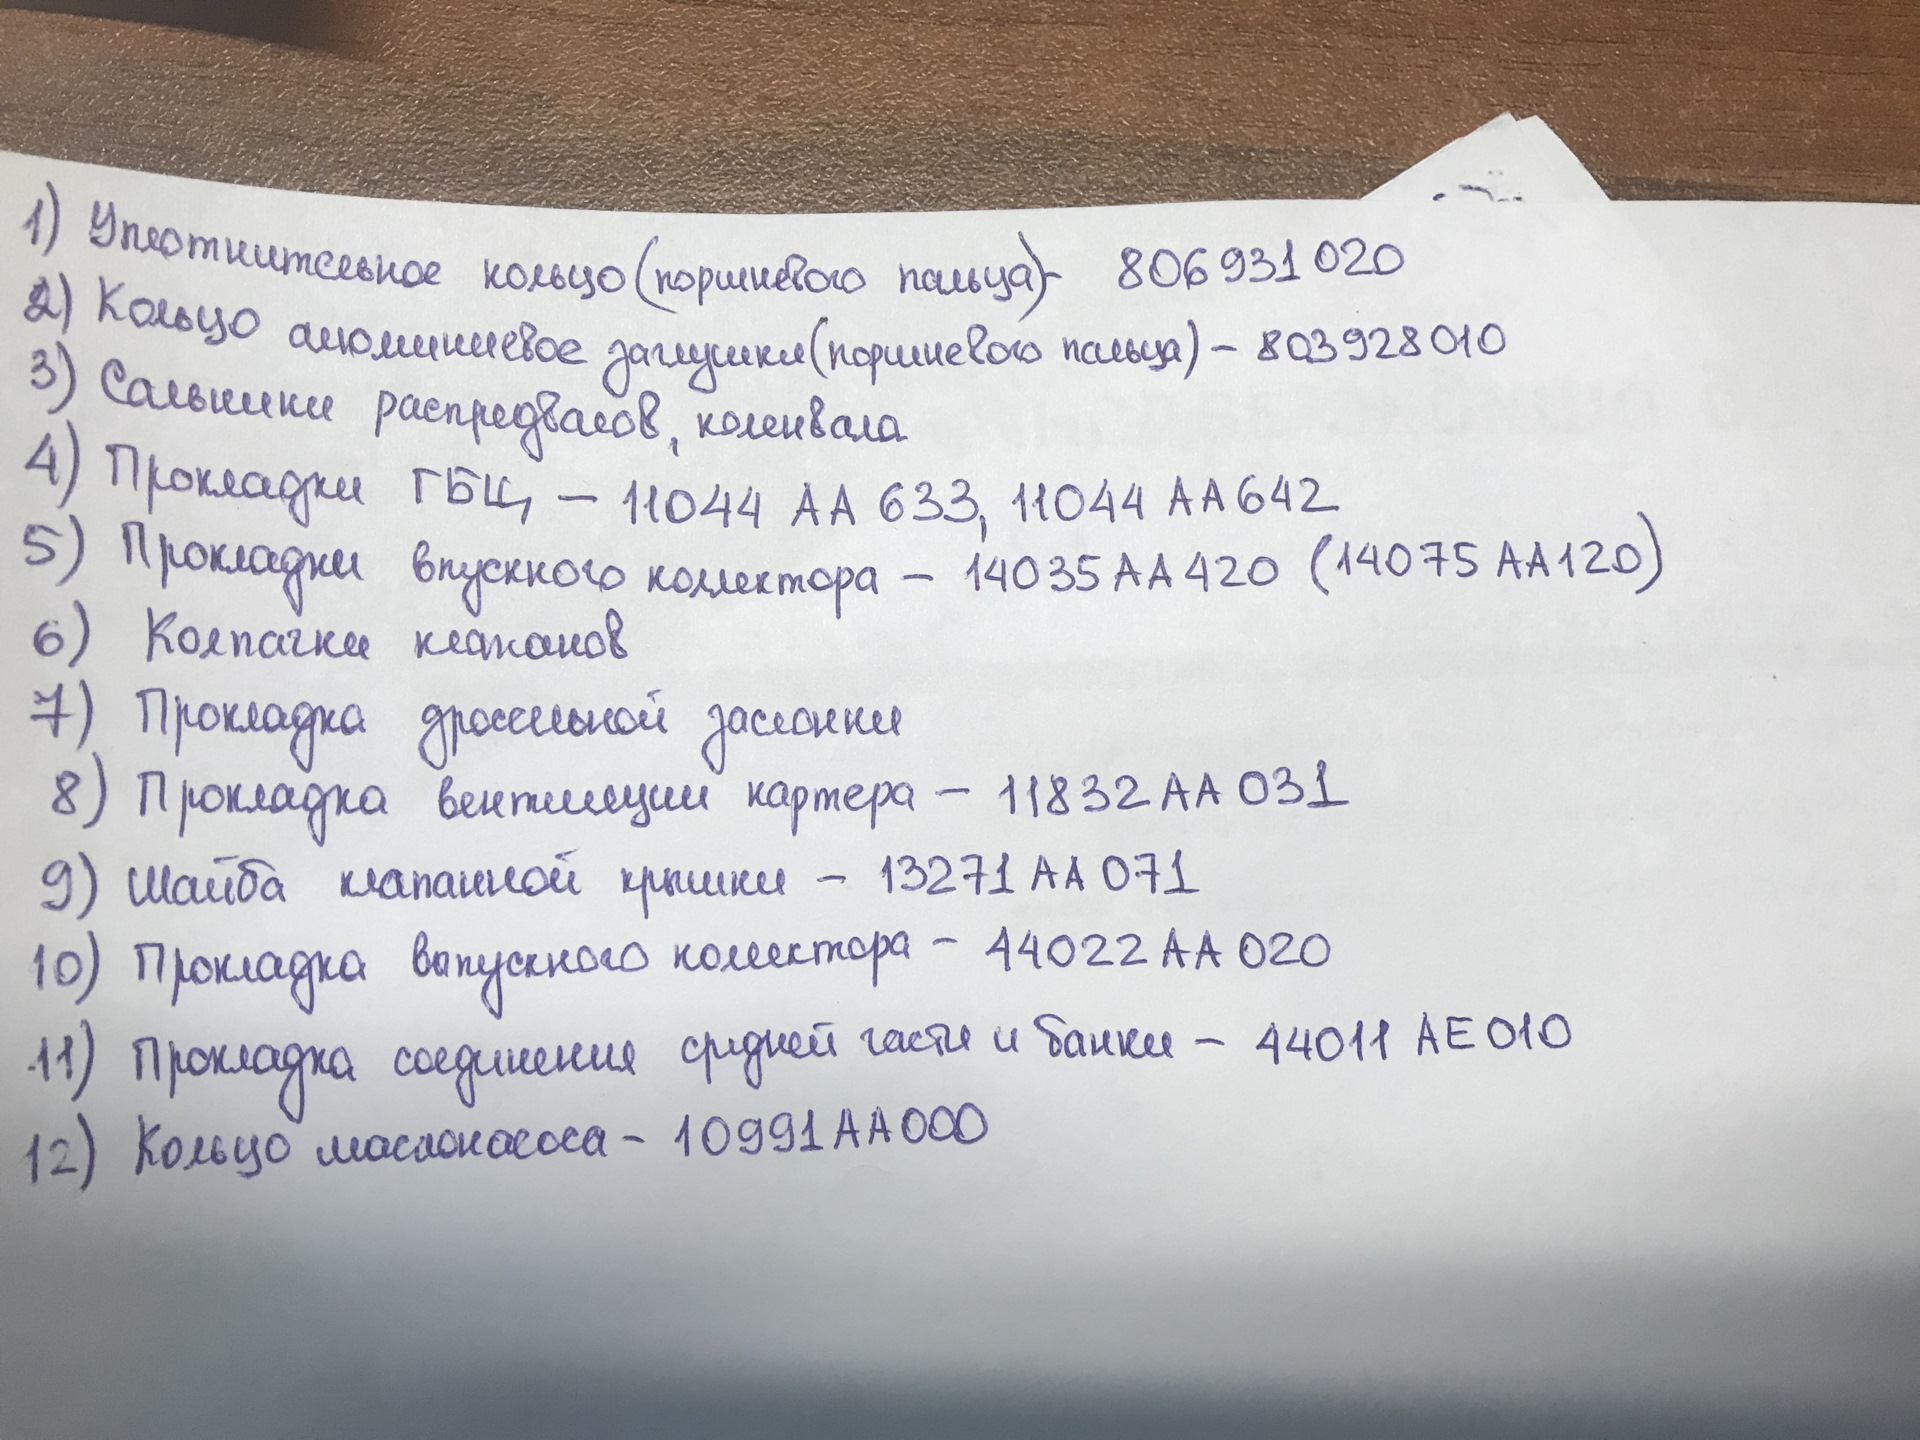 1) Уплотнительное кольцо (поршневого пальца) - 806931020
2) Кольцо алюминиевое заглушки (поршневого пальца) - 803928010
3) Сальники распредвалов, коленвала
4) Прокладки ГБЦ - 11044 AA 633, 11044 AA 642
5) Прокладки впускного коллектора - 14035 AA 420 (14075 AA 120)
6) Колпачки клапанов
7) Прокладка дроссельной заслонки
8) Прокладка вентиляции картера - 11832 AA 031
9) Шайба клапанной крышки - 13271 AA 071
10) Прокладка выпускного коллектора - 44022 AA 020
11) Прокладка соединения средней части и банки - 44011 AE 010
12) Кольцо маслонасоса - 10991 AA 000